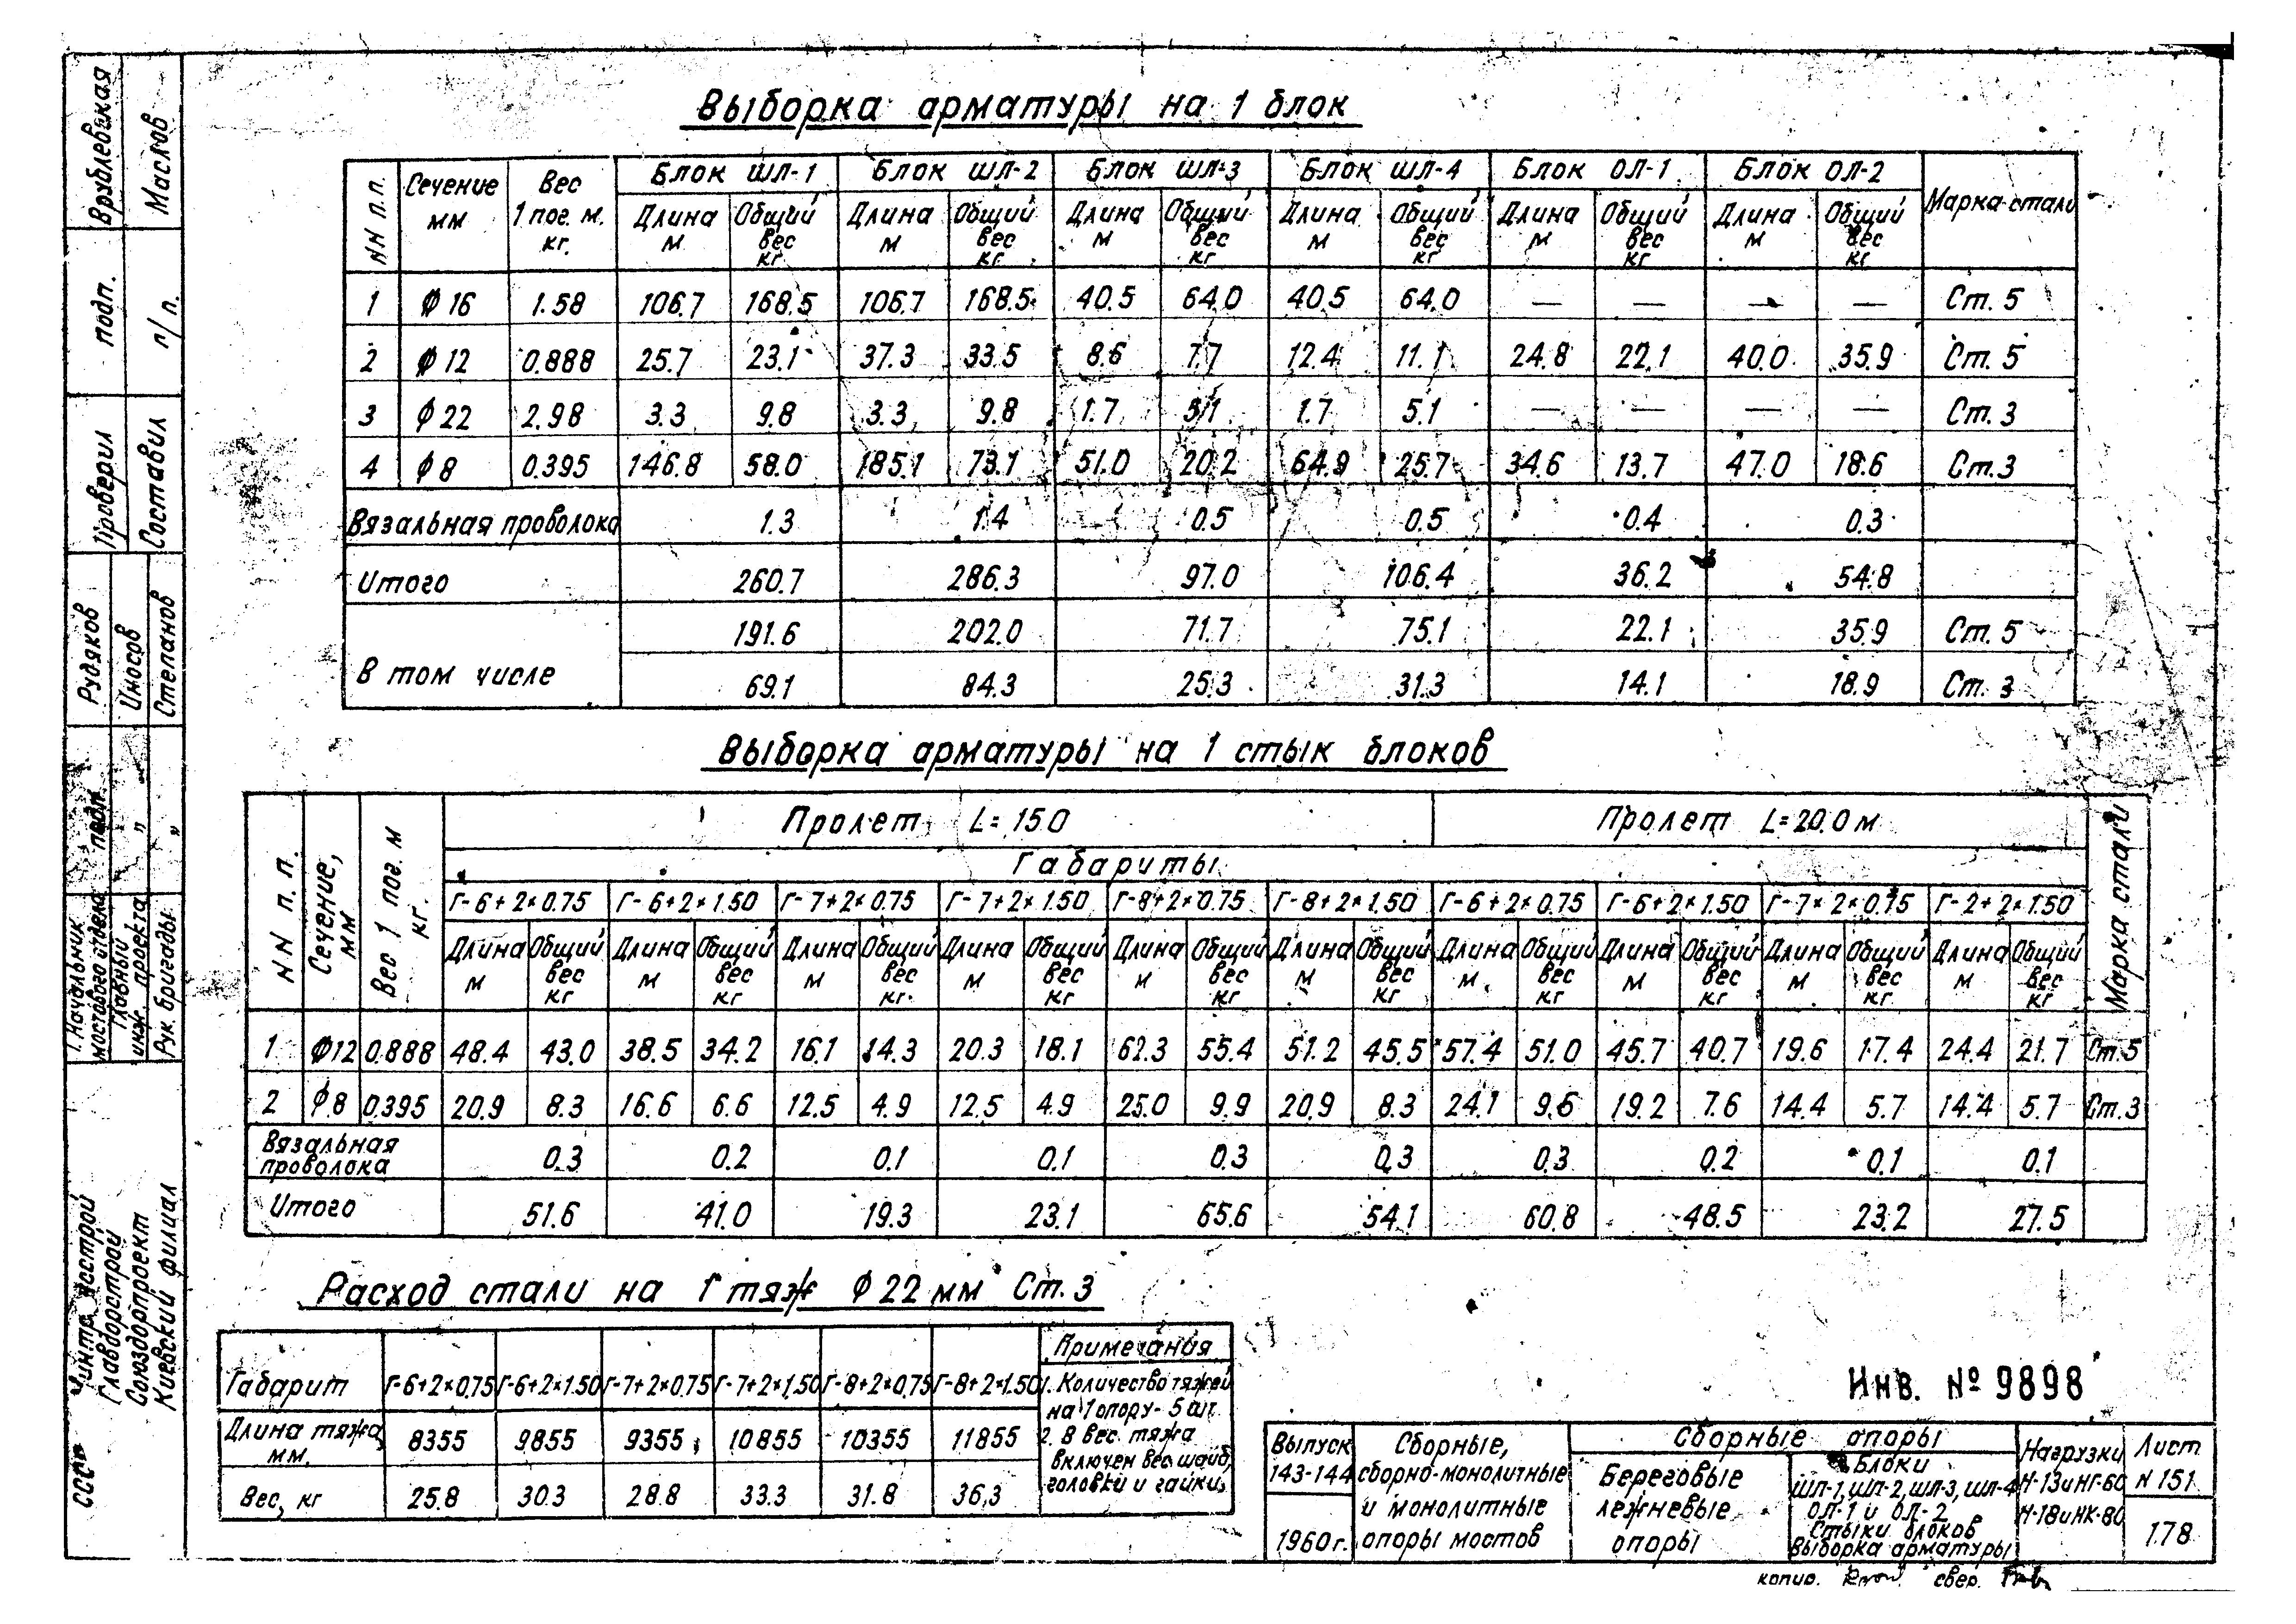 Выборка арматуры на 1 блок
NN п.п. Сечение мм Вес 1 пог. м. кг. Блок ШЛ-1 Блок ШЛ-2 Блок ШЛ-3 Блок ШЛ-4 Блок ОЛ-1 Блок ОЛ-2 Марка стали
Длина м Общий вес кг Длина м Общий вес кг Длина м Общий вес кг Длина м Общий вес кг Длина м Общий вес кг Длина м Общий вес кг
1 ф16 1.58 106.7 168.5 106.7 168.5 40.5 64.0 40.5 64.0 — — — — Ст. 5
2 ф12 0.888 25.7 23.1 37.3 33.5 8.6 7.7 12.4 11.1 24.8 22.1 40.0 35.9 Ст. 5
3 ф22 2.98 3.3 9.8 3.3 9.8 1.7 5.1 1.7 5.1 — — — — Ст. 3
4 ф8 0.395 146.8 58.0 185.1 73.1 51.0 20.2 64.9 25.7 34.6 13.7 47.0 18.6 Ст.3
Вязальная проволока 1.3 1.4 0.5 0.5 0.4 0.3
Итого 260.7 286.3 97.0 106.4 36.2 54.8
В том числе 191.6 202.0 71.7 75.1 22.1 35.9 Ст. 5
69.1 84.3 25.3 31.3 14.1 18.9 Ст. 3
Выборка арматуры на 1 стык блоков
NN п. п. Сечение, мм Вес 1 пог. м кг. Пролет L= 15.0 Пролет L= 20.0 м Марка стали
Габариты
Г-6+2×0.75 Г-6+2×1.50 Г-7+2×0.75 Г-7+2×1.50 Г-8+2×0.75 Г-8+2×1.50 Г-6+2×0.75 Г-6+2×1.50 Г-7×2×0.75 Г-2+2×1.50
Длина м Общий вес кг Длина м Общий вес кг Длина м Общий вес кг Длина м Общий вес кг Длина м Общий вес кг Длина м Общий вес кг Длина м Общий вес кг Длина м Общий вес кг Длина м Общий вес кг Длина м Общий вес кг
1 ф12 0.888 48.4 43.0 38.5 34.2 16.1 14.3 20.3 18.1 62.3 55.4 51.2 45.5 57.4 51.0 45.7 40.7 19.6 17.4 24.4 21.7 Ст.5
2 ф8 0.395 20.9 8.3 16.6 6.6 12.5 4.9 12.5 4.9 25.0 9.9 20.9 8.3 24.1 9.6 19.2 7.6 14.4 5.7 14.4 5.7 Ст.3
Вязальная проволока 0.3 0.2 0.1 0.1 0.3 0.3 0.3 0.2 0.1 0.1
Итого 51.6 41.0 19.3 23.1 65.6 54.1 60.8 48.5 23.2 27.5
Расход стали на 1 тяж ф 22 мм Ст. 3
Габарит Г-6+2×0.75 Г-6+2×1.50 Г-7+2×0.75 Г-7+2×1.50 Г-8+2×0.75 Г-8+2×1.50
Длина тяжа, мм. 8355 9855 9355 10855 10355 11855
Вес, кг 25.8 30.3 28.8 33.3 31.8 36.3
Примечания
1. Количество тяжей
на 1 опору - 5 шт.
2. В вес тяжа
включен вес шайб,
головки и гайки.
Инв. № 9898
Выпуск 143-144
1960 г.
Сборные,
сборно-монолитные
и монолитные
опоры мостов
Сборные опоры
Береговые
лежневые
опоры
Блоки
ШЛ-1, ШЛ-2, ШЛ-3, ШЛ-4
ОЛ-1 и ОЛ-2
Стыки блоков
Выборка арматуры
Нагрузки
Н-13 и НГ-60
Н-18 и НК-80
Лист
N 151
178
копир. свер.
Врублевская
Маслов
подп.
п/п.
Проверил
Составил
Рудяков
Иносов
Степанов
подп.
"
"
Начальник
мостового отдела
Главный
инж. проекта
Рук. бригады
СССР
Главдорстрой
Союздорпроект
Киевский филиал